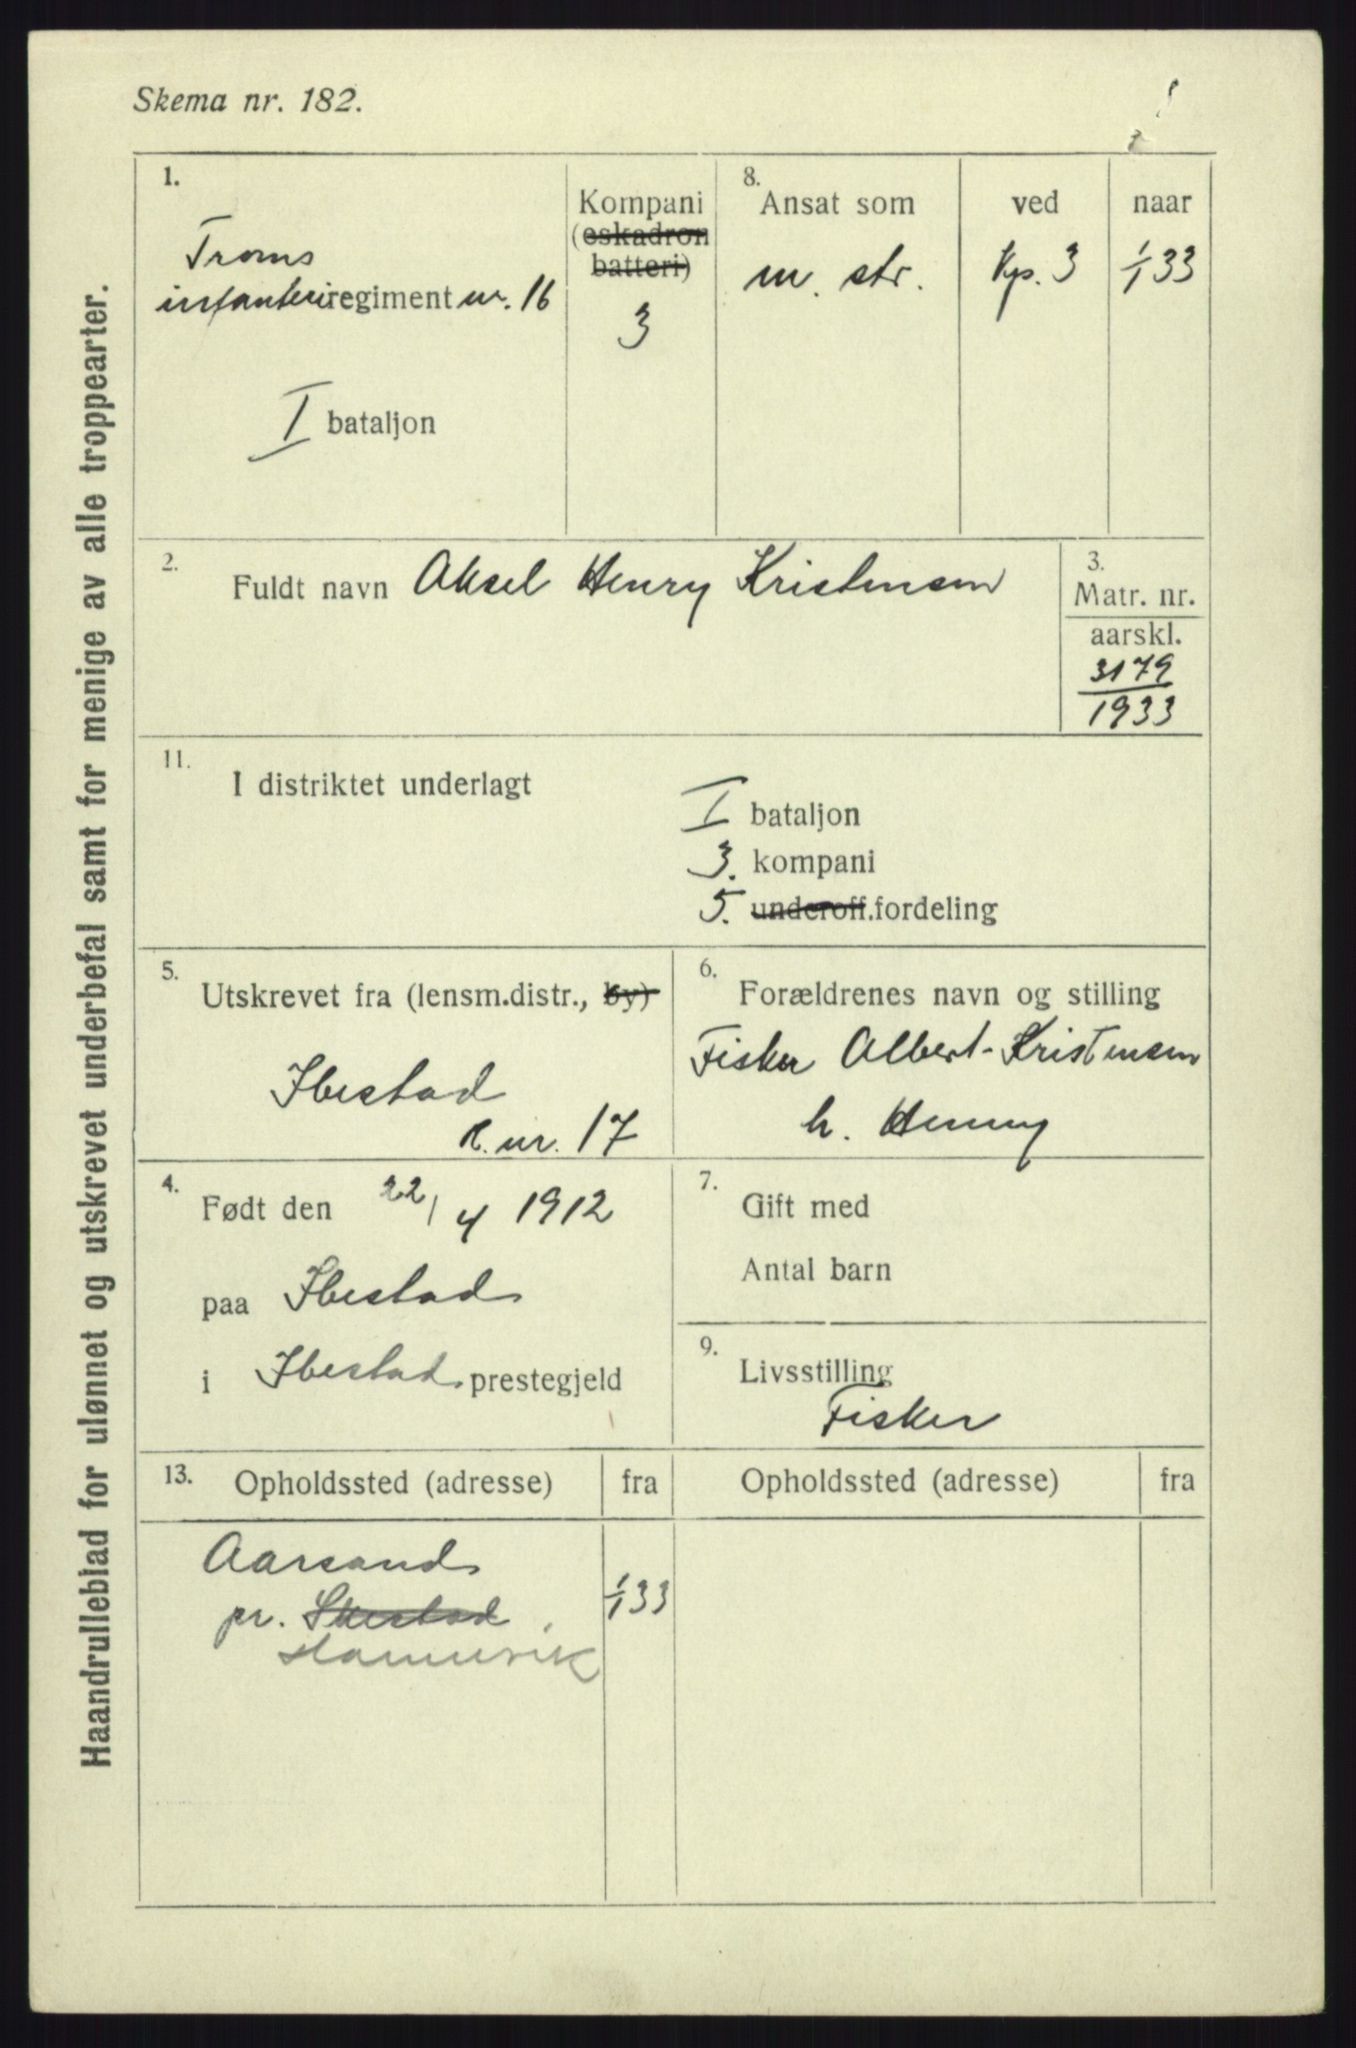 Skema nr. 182.
Haandrulleblad for ulønnet og utskrevet underbefal samt for menige av alle troppearter.
1.
Troms
infanteriregiment nr. 16
I bataljon
Kompani
(eskadron
batteri)
3
8.
Ansat som
m. str.
ved
Kp. 3
naar
1/1 33
2.
Fuldt navn Aksel Henry Kristensen
3.
Matr. nr.
aarskl.
3179
1933
11.
I distriktet underlagt
I bataljon
3. kompani
5. underoff.fordeling
5.
Utskrevet fra (lensm.distr., by)
Ibestad
R. nr. 17
6.
Forældrenes navn og stilling
Fisker Albert Kristensen
h. Henny
4.
Født den 22/4 1912
paa Ibestad
i Ibestad prestegjeld
7.
Gift med
Antal barn
9.
Livsstilling
Fisker
13.
Opholdssted (adresse)
fra
Opholdssted (adresse)
fra
Aarsand
pr.
Hamnvik
1/1 33